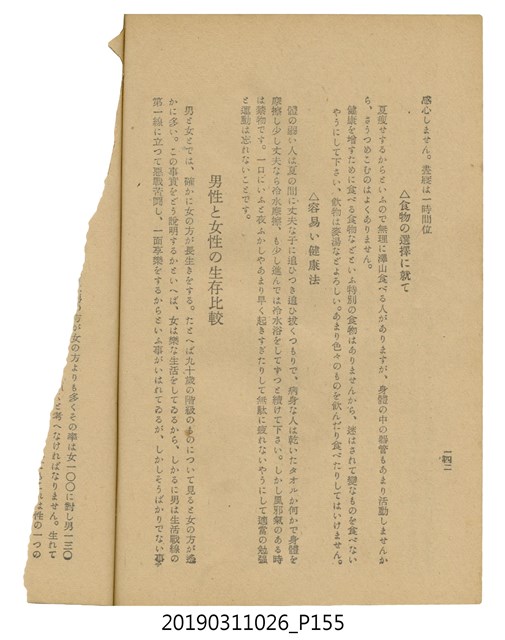 一四二
感心しません。晝寢は一時間位
△食物の選擇に就て
夏瘦せするからといふので無理に澤山食べる人がありますが、身體の中の器管もあまり活動しませんか
ら、さうつめこむのはよくありません。
健康を增すために食べる食物などといふ特別の食物はありませんから、迷はされて變なものを食べない
やうにして下さい、飮物は麥湯などよろしい。あまり色々のものを飮んだり食べたりしてはいけません。
△容易い健康法
體の弱い人は夏の間に丈夫な子に追ひつき追ひ拔くつもりで、病身な人は乾いたタオルか何かで身體を
摩擦し少し丈夫なら冷水摩擦、も少し進んでは冷水浴をしてずつと續けて下さい。しかし風邪氣のある時
は禁物です。一口にいふと夜ふかしやあまり早く起きすぎたりして無駄に疲れないやうにして適當の勉强
と運動は忘れないことです。
男性と女性の生存比較
男と女とでは、確かに女の方が長生きをする。たとへば九十歲の階級のものについて見ると女の方が遙
かに多い。この事實をどう說明するかといへば、女は樂な生活をしてゐるから、しかるに男は生活戰線の
第一線に立つて惡戰苦鬪し、一面享樂をするからといふ事がいはれてゐるが、しかしそうばかりでない事
の方が女の方よりも多くその率は女一〇〇に對し男一三〇
と考へなければなりません。生れて
性の一つの
20190311026_P155